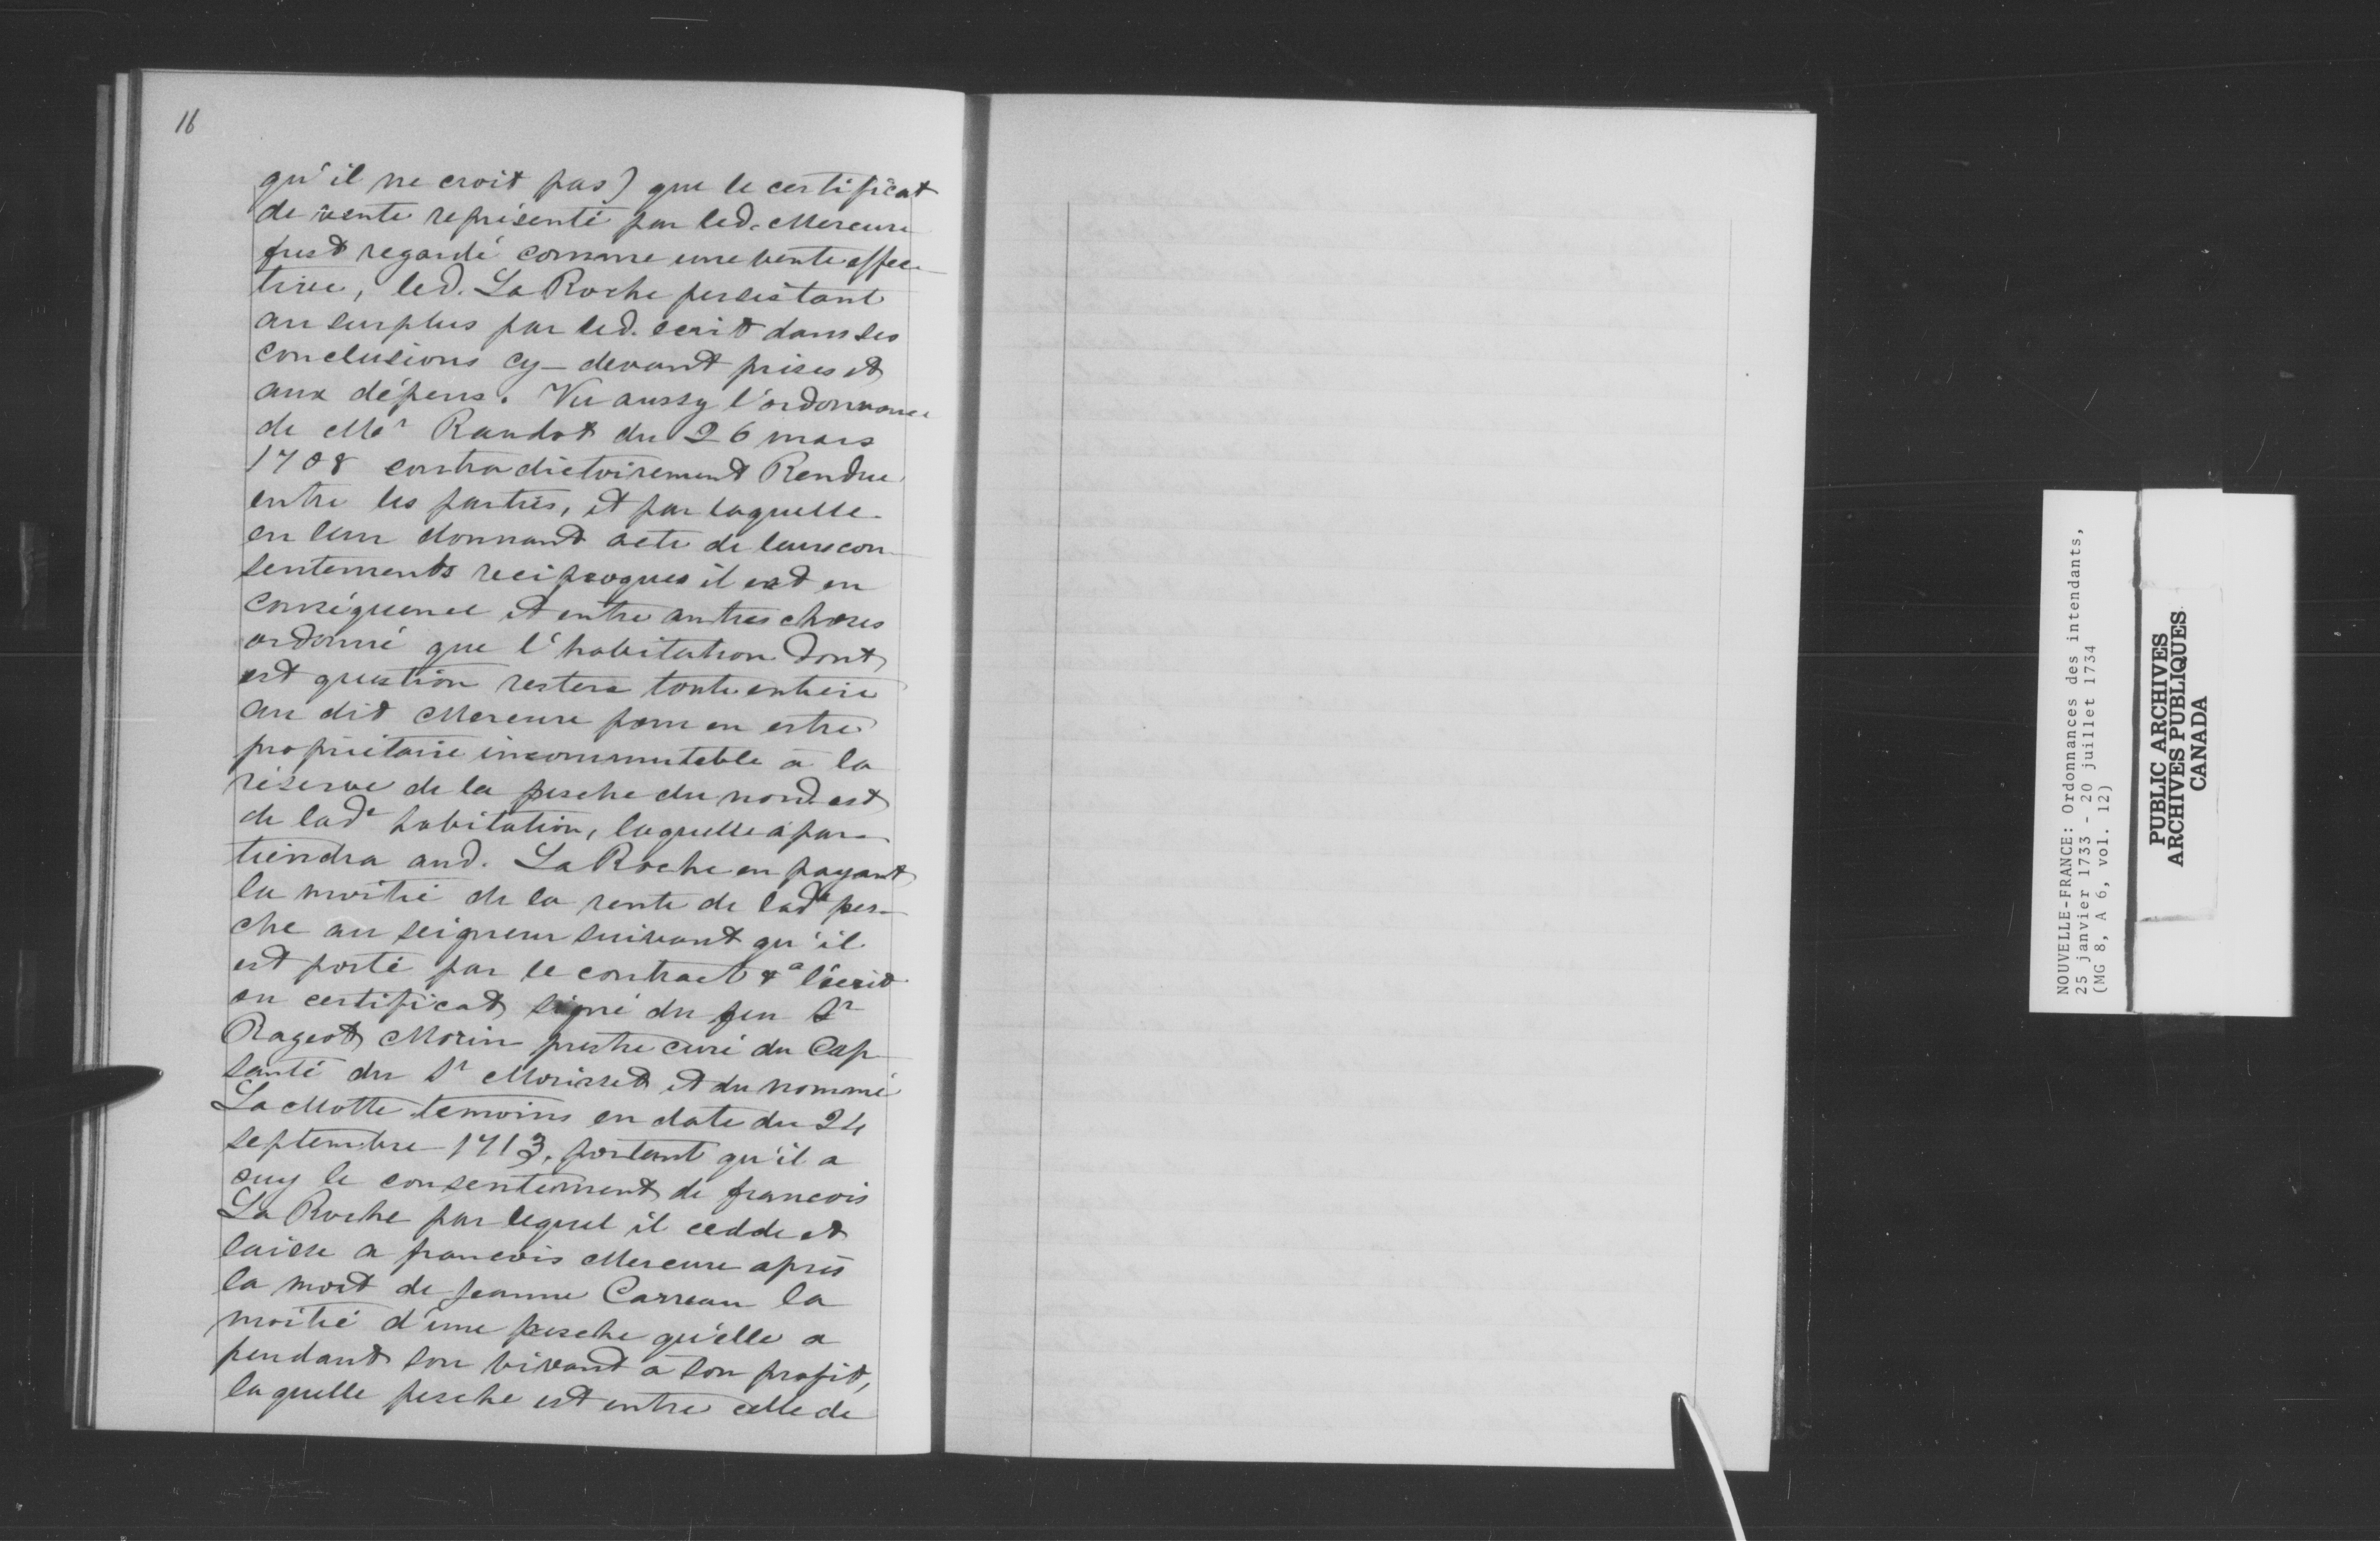 16
qu'il ne croit pas) que le certificat
de vente représenté par led. Mercure
fust regardé comme une vente effec-
tive, led. La Roche persistant
au surplus par led. ecrit dans ses
conclusions cy-devant prises et
aux dépens. Vu aussy l'ordonnance
de Mr Raudot du 26 mars
1708 contradictoirement Rendue
entre les parties, et par laquelle
en leur donnant acte de leurs con-
sentements reciproques il est en
conséquence et entre autres choses
ordonné que l'habitation dont
est question restera toute entiere
au dit Mercure pour en estre
propriétaire incommutable à la
réserve de la pesche du nord est
de lade habitation, laquelle apar-
tiendra aud. La Roche en payant
la moitié de la rente de lade pes-
che au seigneur suivant qu'il
est porté par le contract &a l'écrit
ou certificat signé du feu Sr
Rageot Morin prestre curé du Cap
Santé du Sr Morisset et du nommé
La Motte temoins en date du 24
septembre 1713, portant qu'il a
ouy le consentement de francois
La Roche par lequel il cedde et
laisse a francois Mercure après
la mort de Jeanne Carreau la
moitié d'une pesche qu'elle a
pendant son vivant à son profit,
laquelle pesche est entre celle de
NOUVELLE-FRANCE: Ordonnances des intendants,
25 janvier 1733 - 20 juillet 1734
(MG 8, A 6, vol. 12)
PUBLIC ARCHIVES
ARCHIVES PUBLIQUES
CANADA